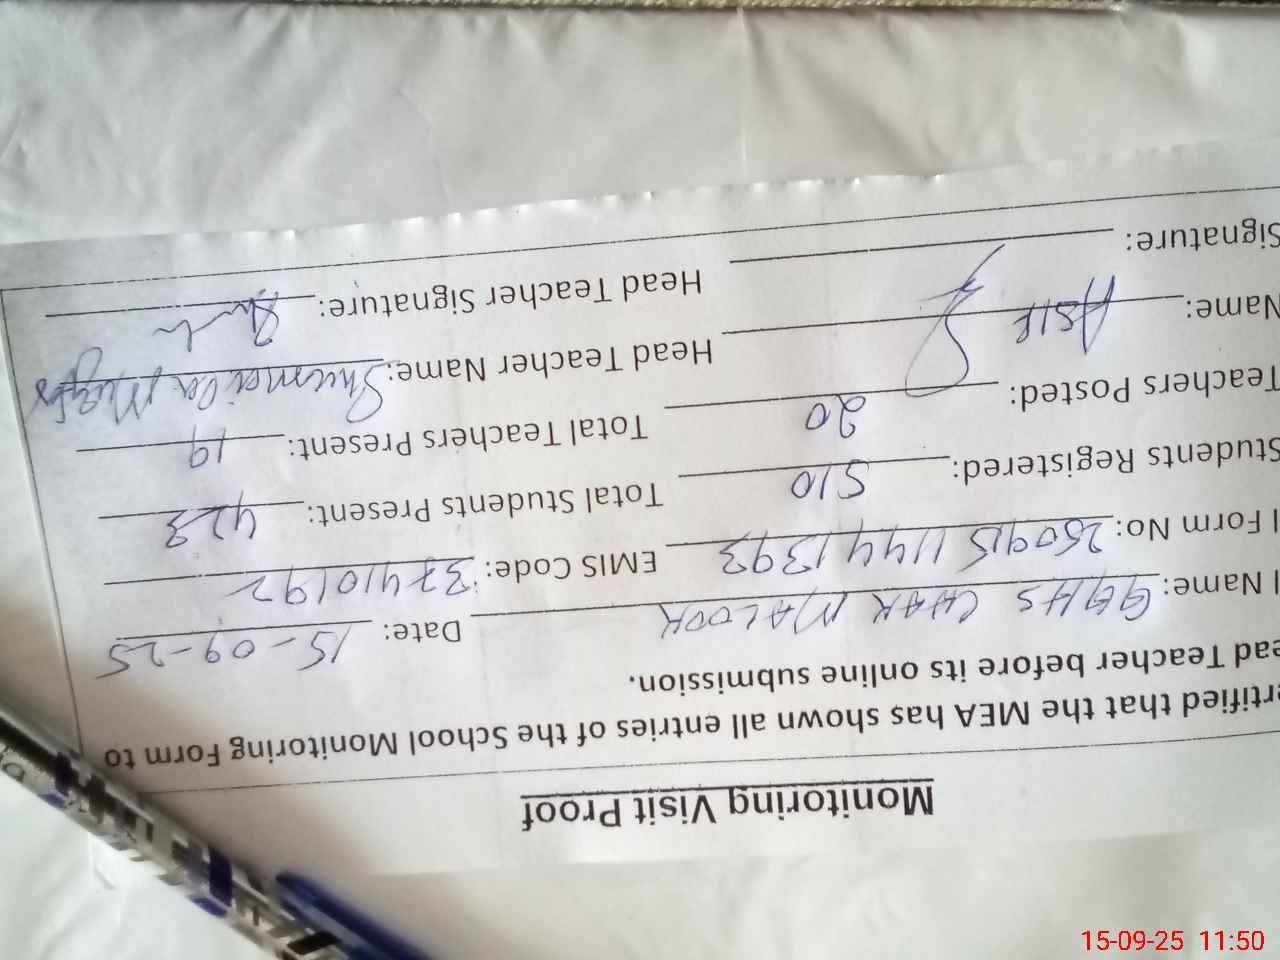 Monitoring Visit Proof
rtified that the MEA has shown all entries of the School Monitoring Form to
ead Teacher before its online submission.
l Name: GGHS CHAK MALOOK Date: 15-09-25
l Form No: 250915 1144 1393 EMIS Code: 37410192
Students Registered: 510 Total Students Present: 423
Teachers Posted: 20 Total Teachers Present: 19
Name: ASIF Head Teacher Name: Shumaila
Signature: Head Teacher Signature:
15-09-25 11:50